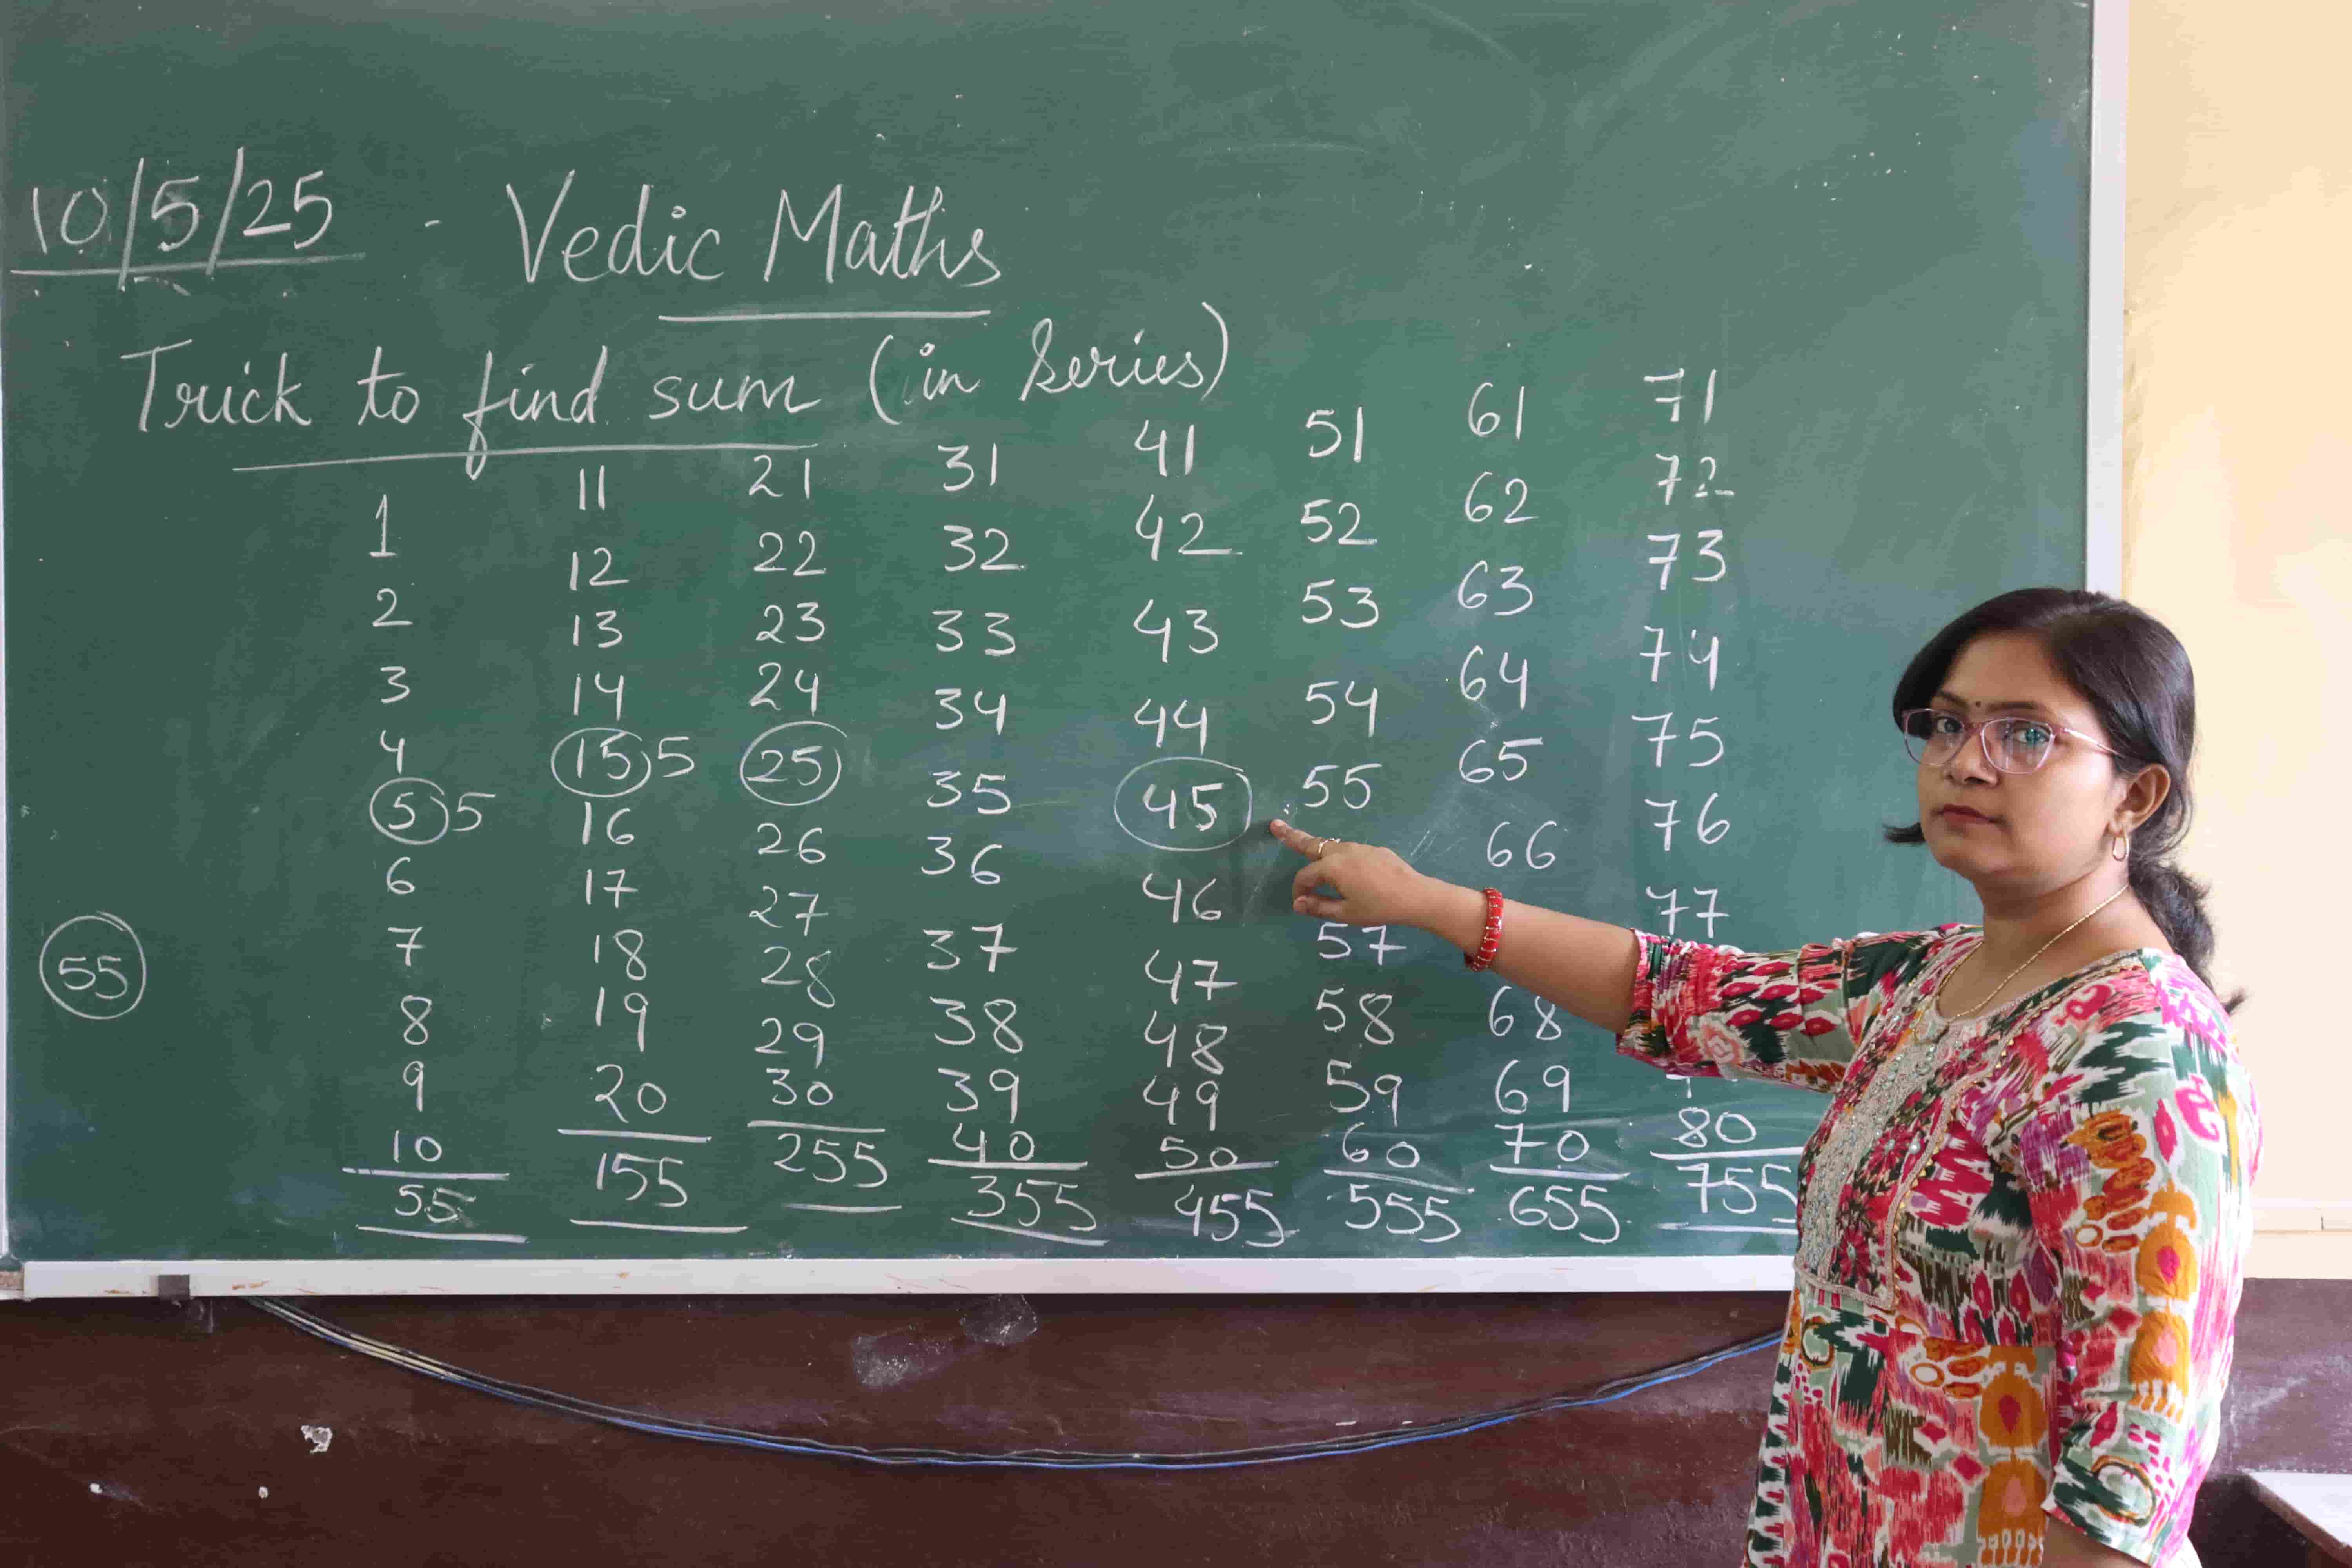 10/5/25 - Vedic Maths
Trick to find sum (in series)
1 11 21 31 41 51 61 71
2 12 22 32 42 52 62 72
3 13 23 33 43 53 63 73
4 14 24 34 44 54 64 74
5 5 15 5 25 35 45 55 65 75
6 16 26 36 46 66 76
55 7 17 27 37 47 57 77
8 18 28 38 48 58 68
9 19 29 39 49 59 69
10 20 30 40 50 60 70 80
55 155 255 355 455 555 655 755